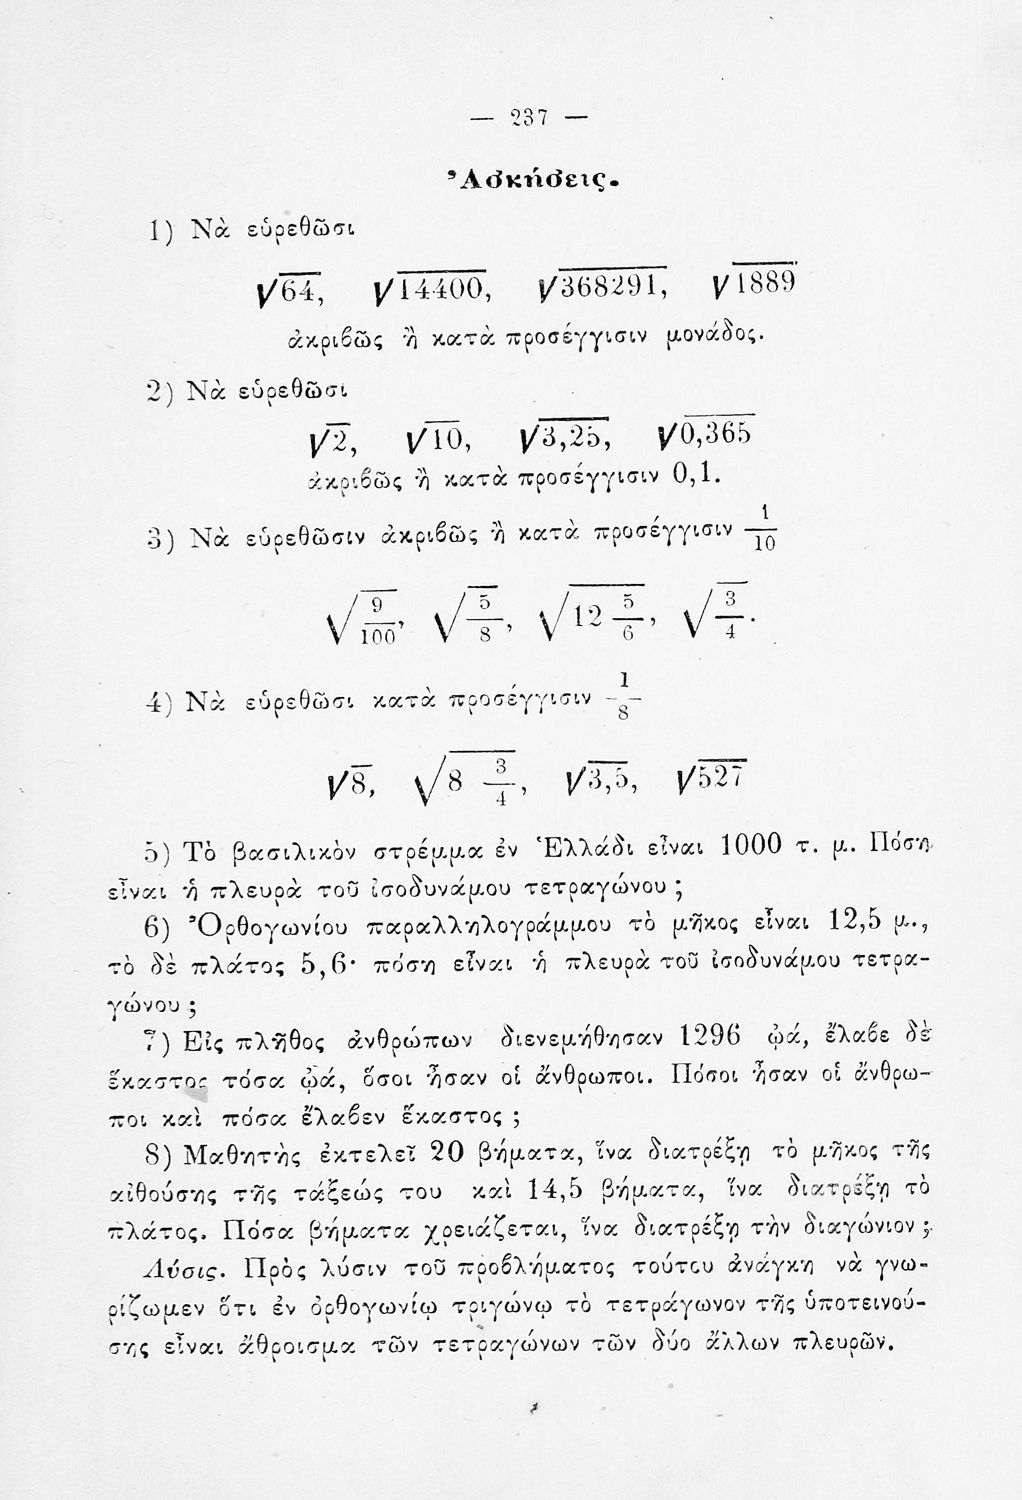 — 237 —
Ἀσκήσεις.
1) Νὰ εὑρεθῶσι
√64, √14400, √368291, √1889
ἀκριβῶς ἢ κατὰ προσέγγισιν μονάδος.
2) Νὰ εὑρεθῶσι
√2, √10, √3,25, √0,365
ἀκριβῶς ἢ κατὰ προσέγγισιν 0,1.
3) Νὰ εὑρεθῶσιν ἀκριβῶς ἢ κατὰ προσέγγισιν 1/10
√9/100, √5/8, √12 5/6, √3/4.
4) Νὰ εὑρεθῶσι κατὰ προσέγγισιν 1/8
√8, √8 3/4, √3,5, √527
5) Τὸ βασιλικὸν στρέμμα ἐν Ἑλλάδι εἶναι 1000 τ. μ. Πόση
εἶναι ἡ πλευρὰ τοῦ ἰσοδυνάμου τετραγώνου ;
6) Ὀρθογωνίου παραλληλογράμμου τὸ μῆκος εἶναι 12,5 μ.,
τὸ δὲ πλάτος 5,6· πόση εἶναι ἡ πλευρὰ τοῦ ἰσοδυνάμου τετρα-
γώνου ;
7) Εἰς πλῆθος ἀνθρώπων διενεμήθησαν 1296 ᾠά, ἔλαβε δὲ
ἕκαστος τόσα ᾠά, ὅσοι ἦσαν οἱ ἄνθρωποι. Πόσοι ἦσαν οἱ ἄνθρω-
ποι καὶ πόσα ἔλαβεν ἕκαστος ;
8) Μαθητὴς ἐκτελεῖ 20 βήματα, ἵνα διατρέξῃ τὸ μῆκος τῆς
αἰθούσης τῆς τάξεώς του καὶ 14,5 βήματα, ἵνα διατρέξῃ τὸ
πλάτος. Πόσα βήματα χρειάζεται, ἵνα διατρέξῃ τὴν διαγώνιον ;
Λύσις. Πρὸς λύσιν τοῦ προβλήματος τούτου ἀνάγκη νὰ γνω-
ρίζωμεν ὅτι ἐν ὀρθογωνίῳ τριγώνῳ τὸ τετράγωνον τῆς ὑποτεινού-
σης εἶναι ἄθροισμα τῶν τετραγώνων τῶν δύο ἄλλων πλευρῶν.